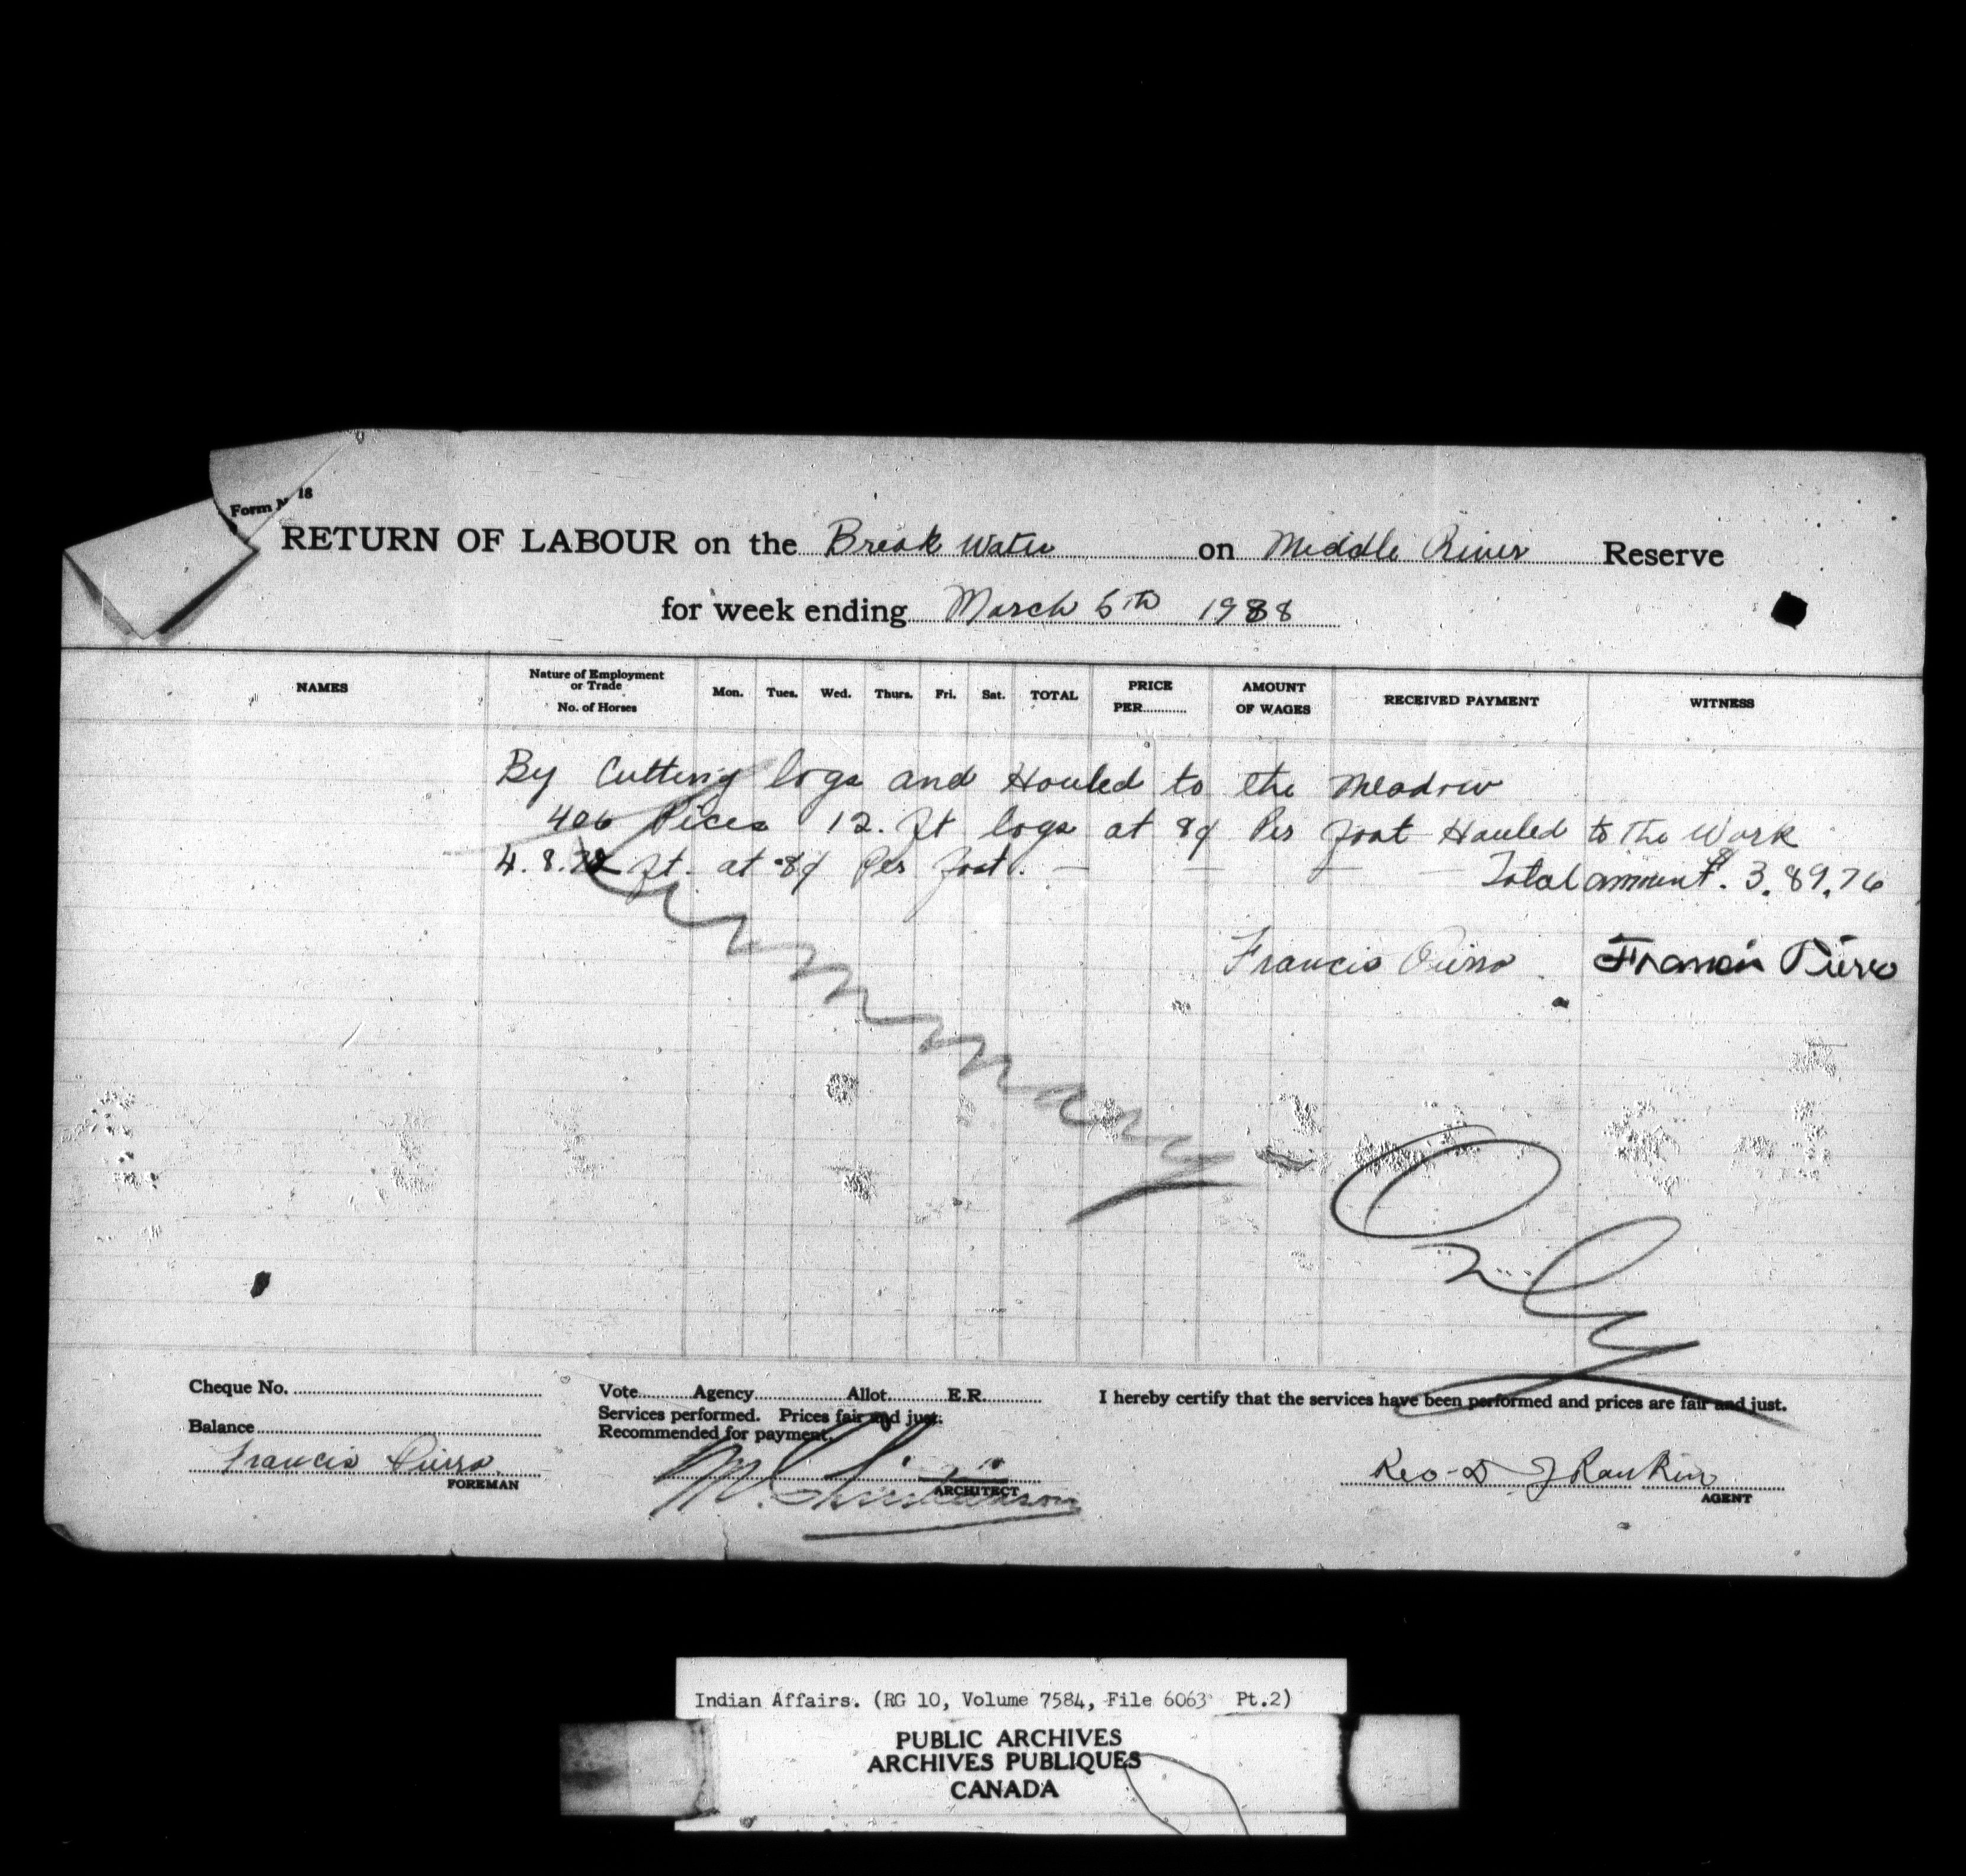 Form N 18
RETURN OF LABOUR on the Break Water on Middle River Reserve
for week ending March 5th 1938
NAMES
Nature of Employment or Trade No. of Horses
Mon. Tues. Wed. Thurs. Fri. Sat. TOTAL
PRICE PER
AMOUNT OF WAGES
RECEIVED PAYMENT
WITNESS
By Cutting logs and Hauled to the Meadow
406 Pices 12. ft logs at 8¢ Per foot Hauled to The Work
4.8.72 ft. at 8¢ Per foot. — — — — Total amount $. 3.89.76
Francis Pierro. Francis Pierro
Summary
Only
Cheque No.
Balance
Francis Pierro.
FOREMAN
Vote Agency Allot. E.R.
Services performed. Prices fair and just.
Recommended for payment.
M. Christianson
ARCHITECT
I hereby certify that the services have been performed and prices are fair and just.
Rev. D J Rankin
AGENT
Indian Affairs. (RG 10, Volume 7584, File 6063 Pt.2)
PUBLIC ARCHIVES
ARCHIVES PUBLIQUES
CANADA